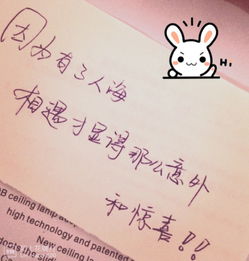 因为有了人海
Hi,
相遇才显得那么意外
和惊喜!!
ceiling lamp
high technology and patented
New ceiling